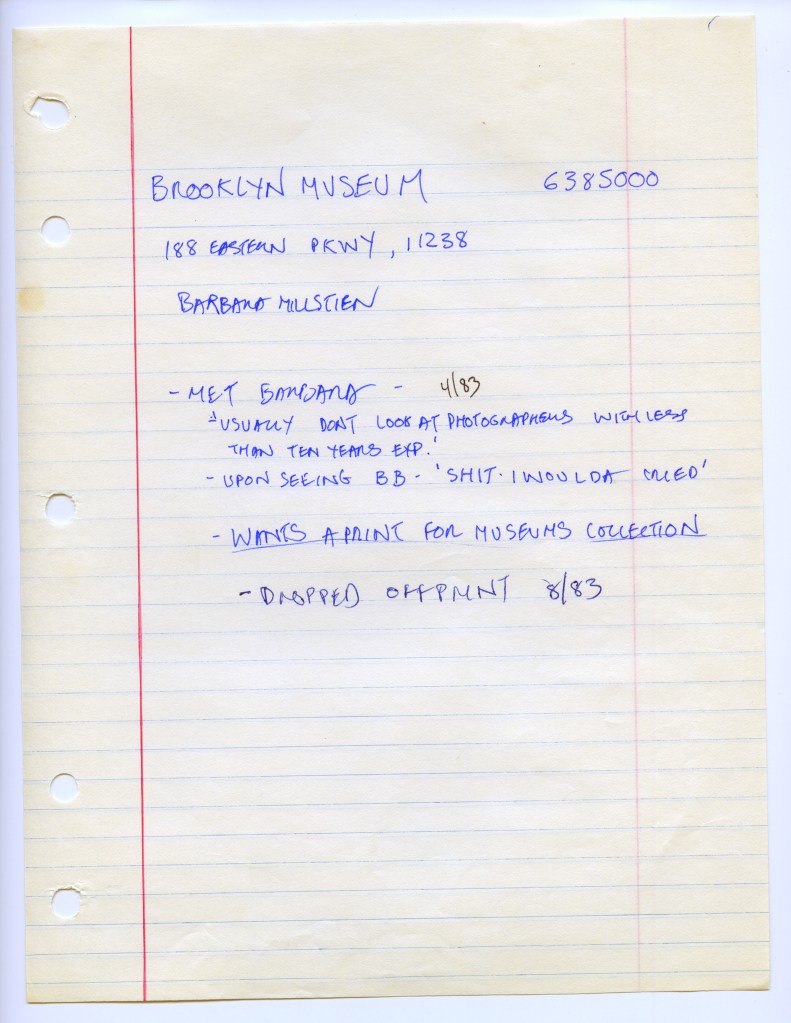 BROOKLYN MUSEUM 6385000
188 EASTERN PKWY, 11238
BARBARA MILLSTIEN
- MET BARBARA - 4/83
"USUALLY DONT LOOK AT PHOTOGRAPHERS WITH LESS
THAN TEN YEARS EXP.'
- UPON SEEING BB - 'SHIT. I WOULDA CRIED'
- WANTS A PRINT FOR MUSEUMS COLLECTION
- DROPPED OFF PRINT 8/83